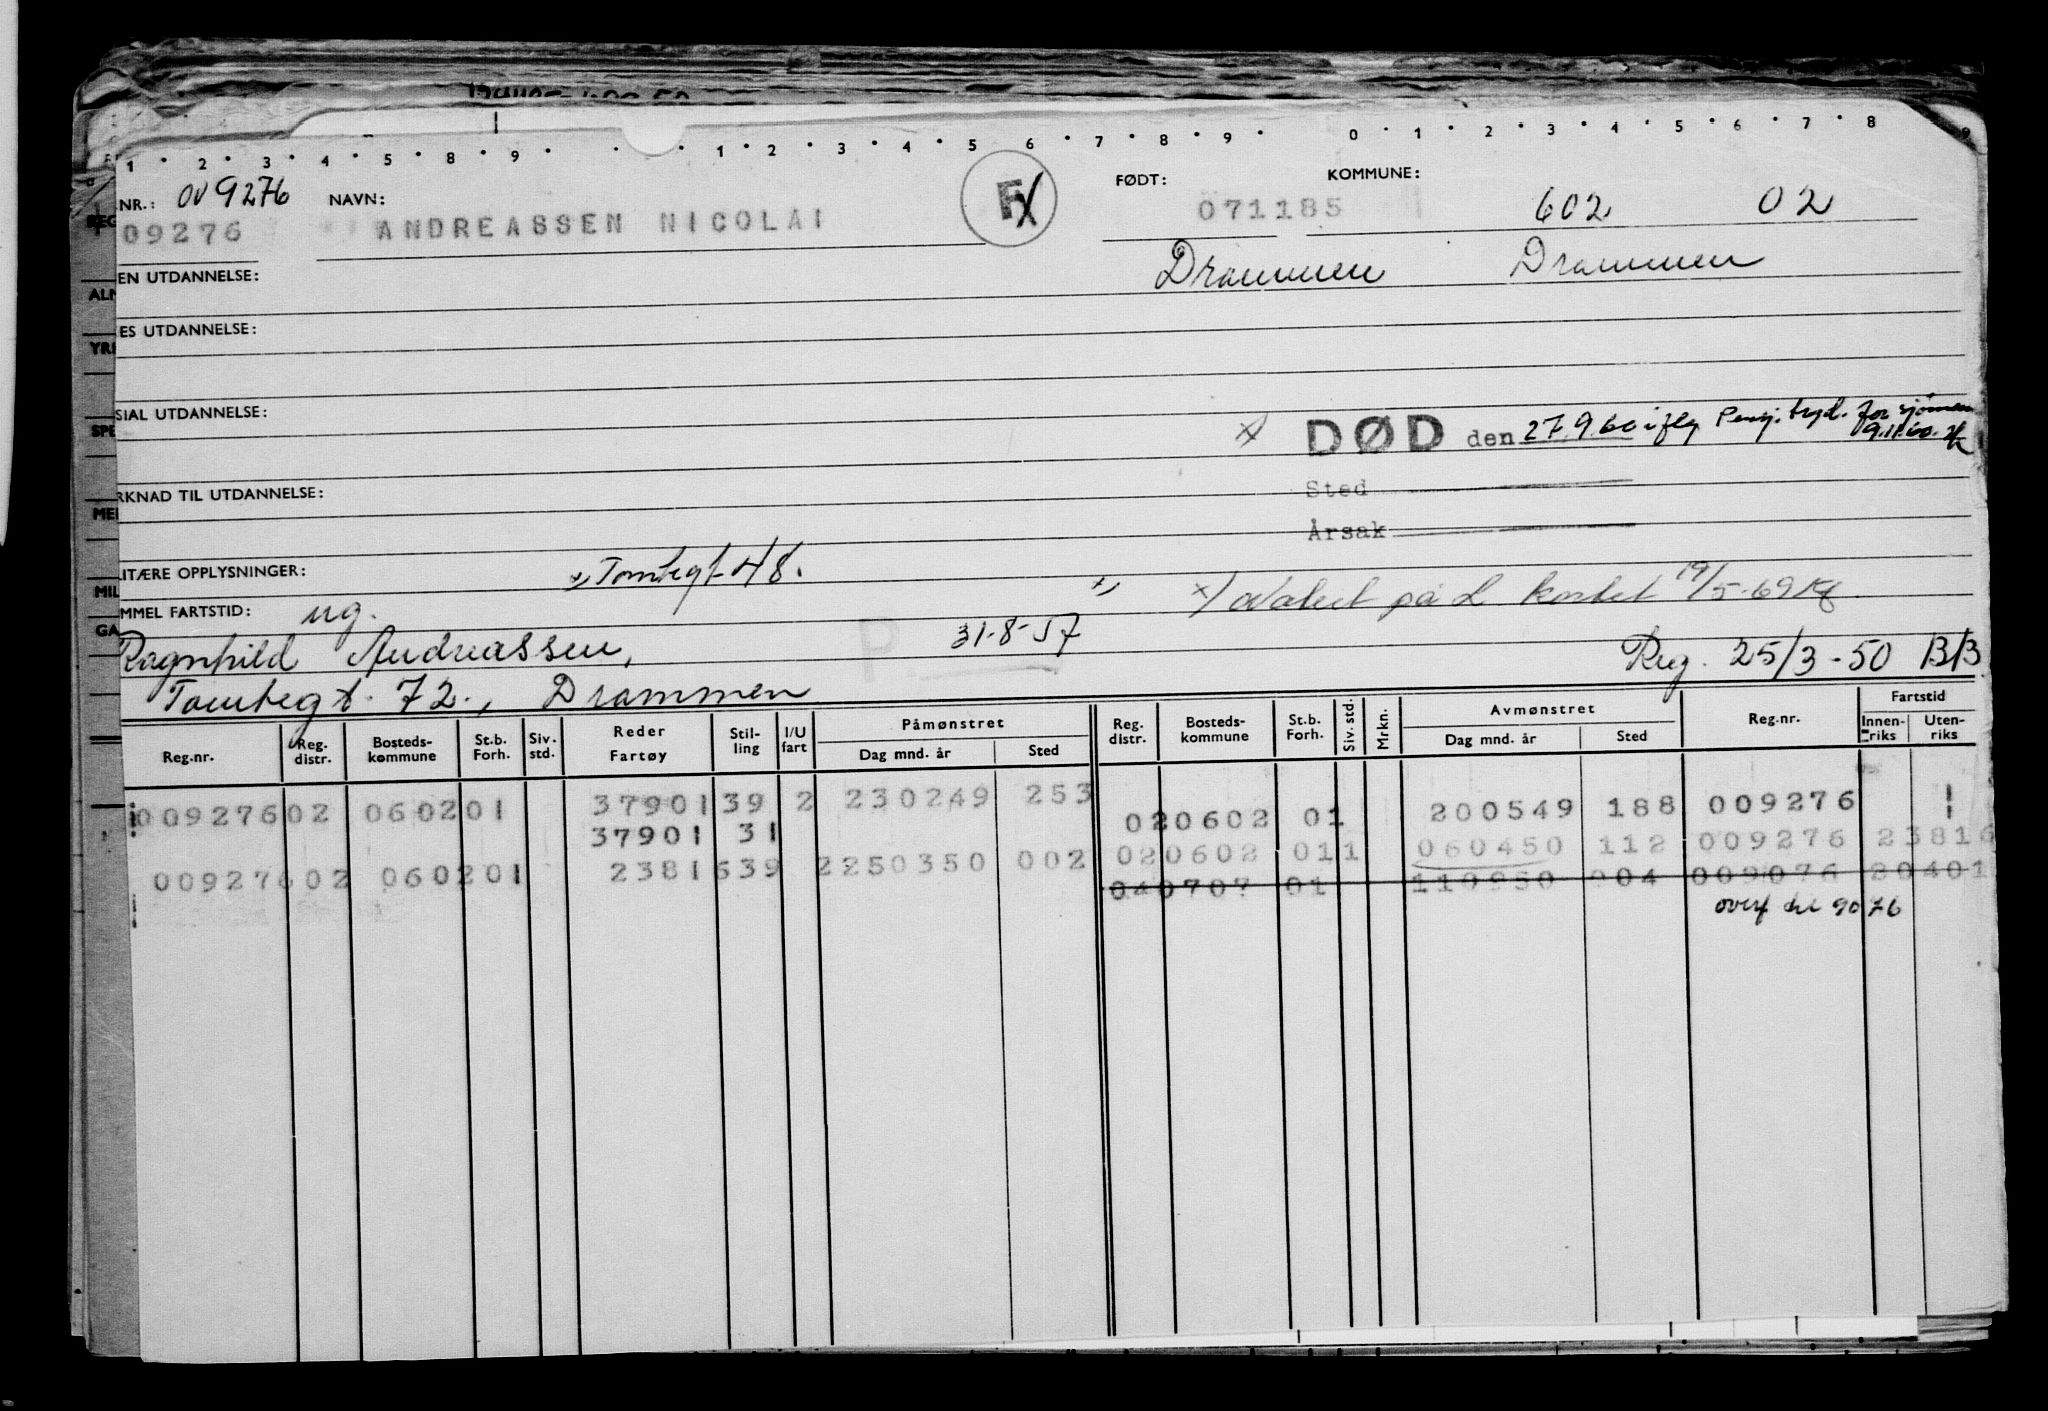 1 · 2 · 3 · 4 · 5 · 8 · 9 · · · 1 · 2 · 3 · 4 · 5 · 6 · 7 · 8 · 9 · 0 · 1 · 2 · 3 · 4 · 5 · 6 · 7 · 8 9
NR.: 009276 NAVN: F FØDT: KOMMUNE:
09276 ANDREASSEN NICOLAI 071185 602 02
EN UTDANNELSE: Drammen Drammen
ES UTDANNELSE:
SIAL UTDANNELSE:
x DØD den 27.9.60 iflg Pensj. tryd. for sjømenn
9.11.60.
RKNAD TIL UTDANNELSE: Sted
Årsak
LITÆRE OPPLYSNINGER: Tomtegt 48.
MMEL FARTSTID: ug. x) Notert på L kortet 19/5-69
Ragnhild Andreassen, P. 31-8-57 Reg. 25/3-50 B/B
Tomtegt. 72., Drammen
Reg.nr. Reg. distr. Bosteds-kommune St.b. Forh. Siv. std. Reder Fartøy Stil-ling I/U fart Påmønstret Dag mnd. år Sted Reg. distr. Bosteds-kommune St.b. Forh. Siv. std. Mrkn. Avmønstret Dag mnd. år Sted Reg.nr. Fartstid Innen-riks Uten-riks
009276 02 0602 01 37901 39 2 230249 253 02 0602 01 200549 188 009276 1
37901 31
009276 02 0602 01 23816 39 2 250350 002 02 0602 01 1 060450 112 009276 23816
04 0707 01 110950 904 009076 20401
overf til 9076